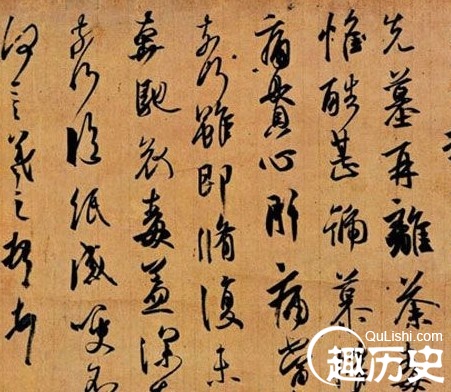 先墓再離荼
惟酷甚號慕
痛貫心肝痛當
奈何雖即脩復未
奔馳哀毒益深
奈何臨紙感哽不
何言羲之頓首
QuLishi.com
趣历史